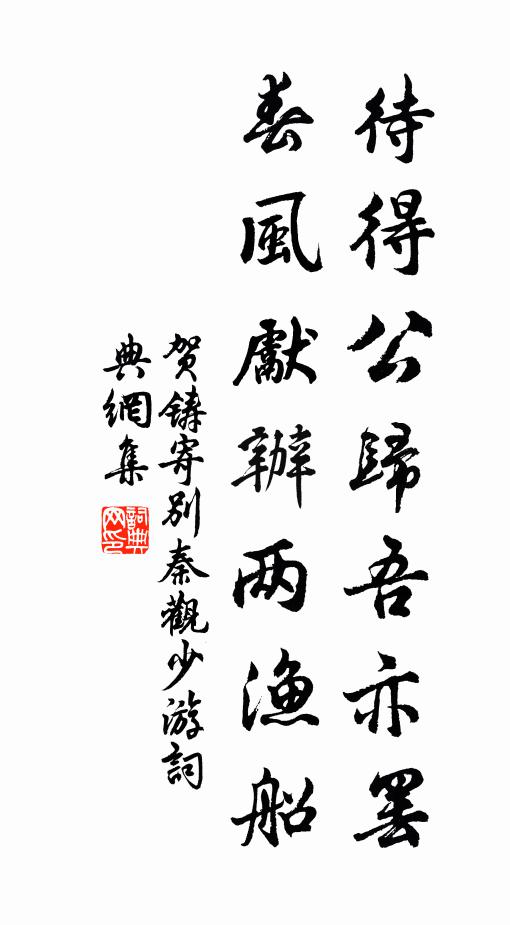 待得公歸吾亦罷
春風獻辦两漁船
贺鑄寄別秦觀少游詞
典網集
詞典网印